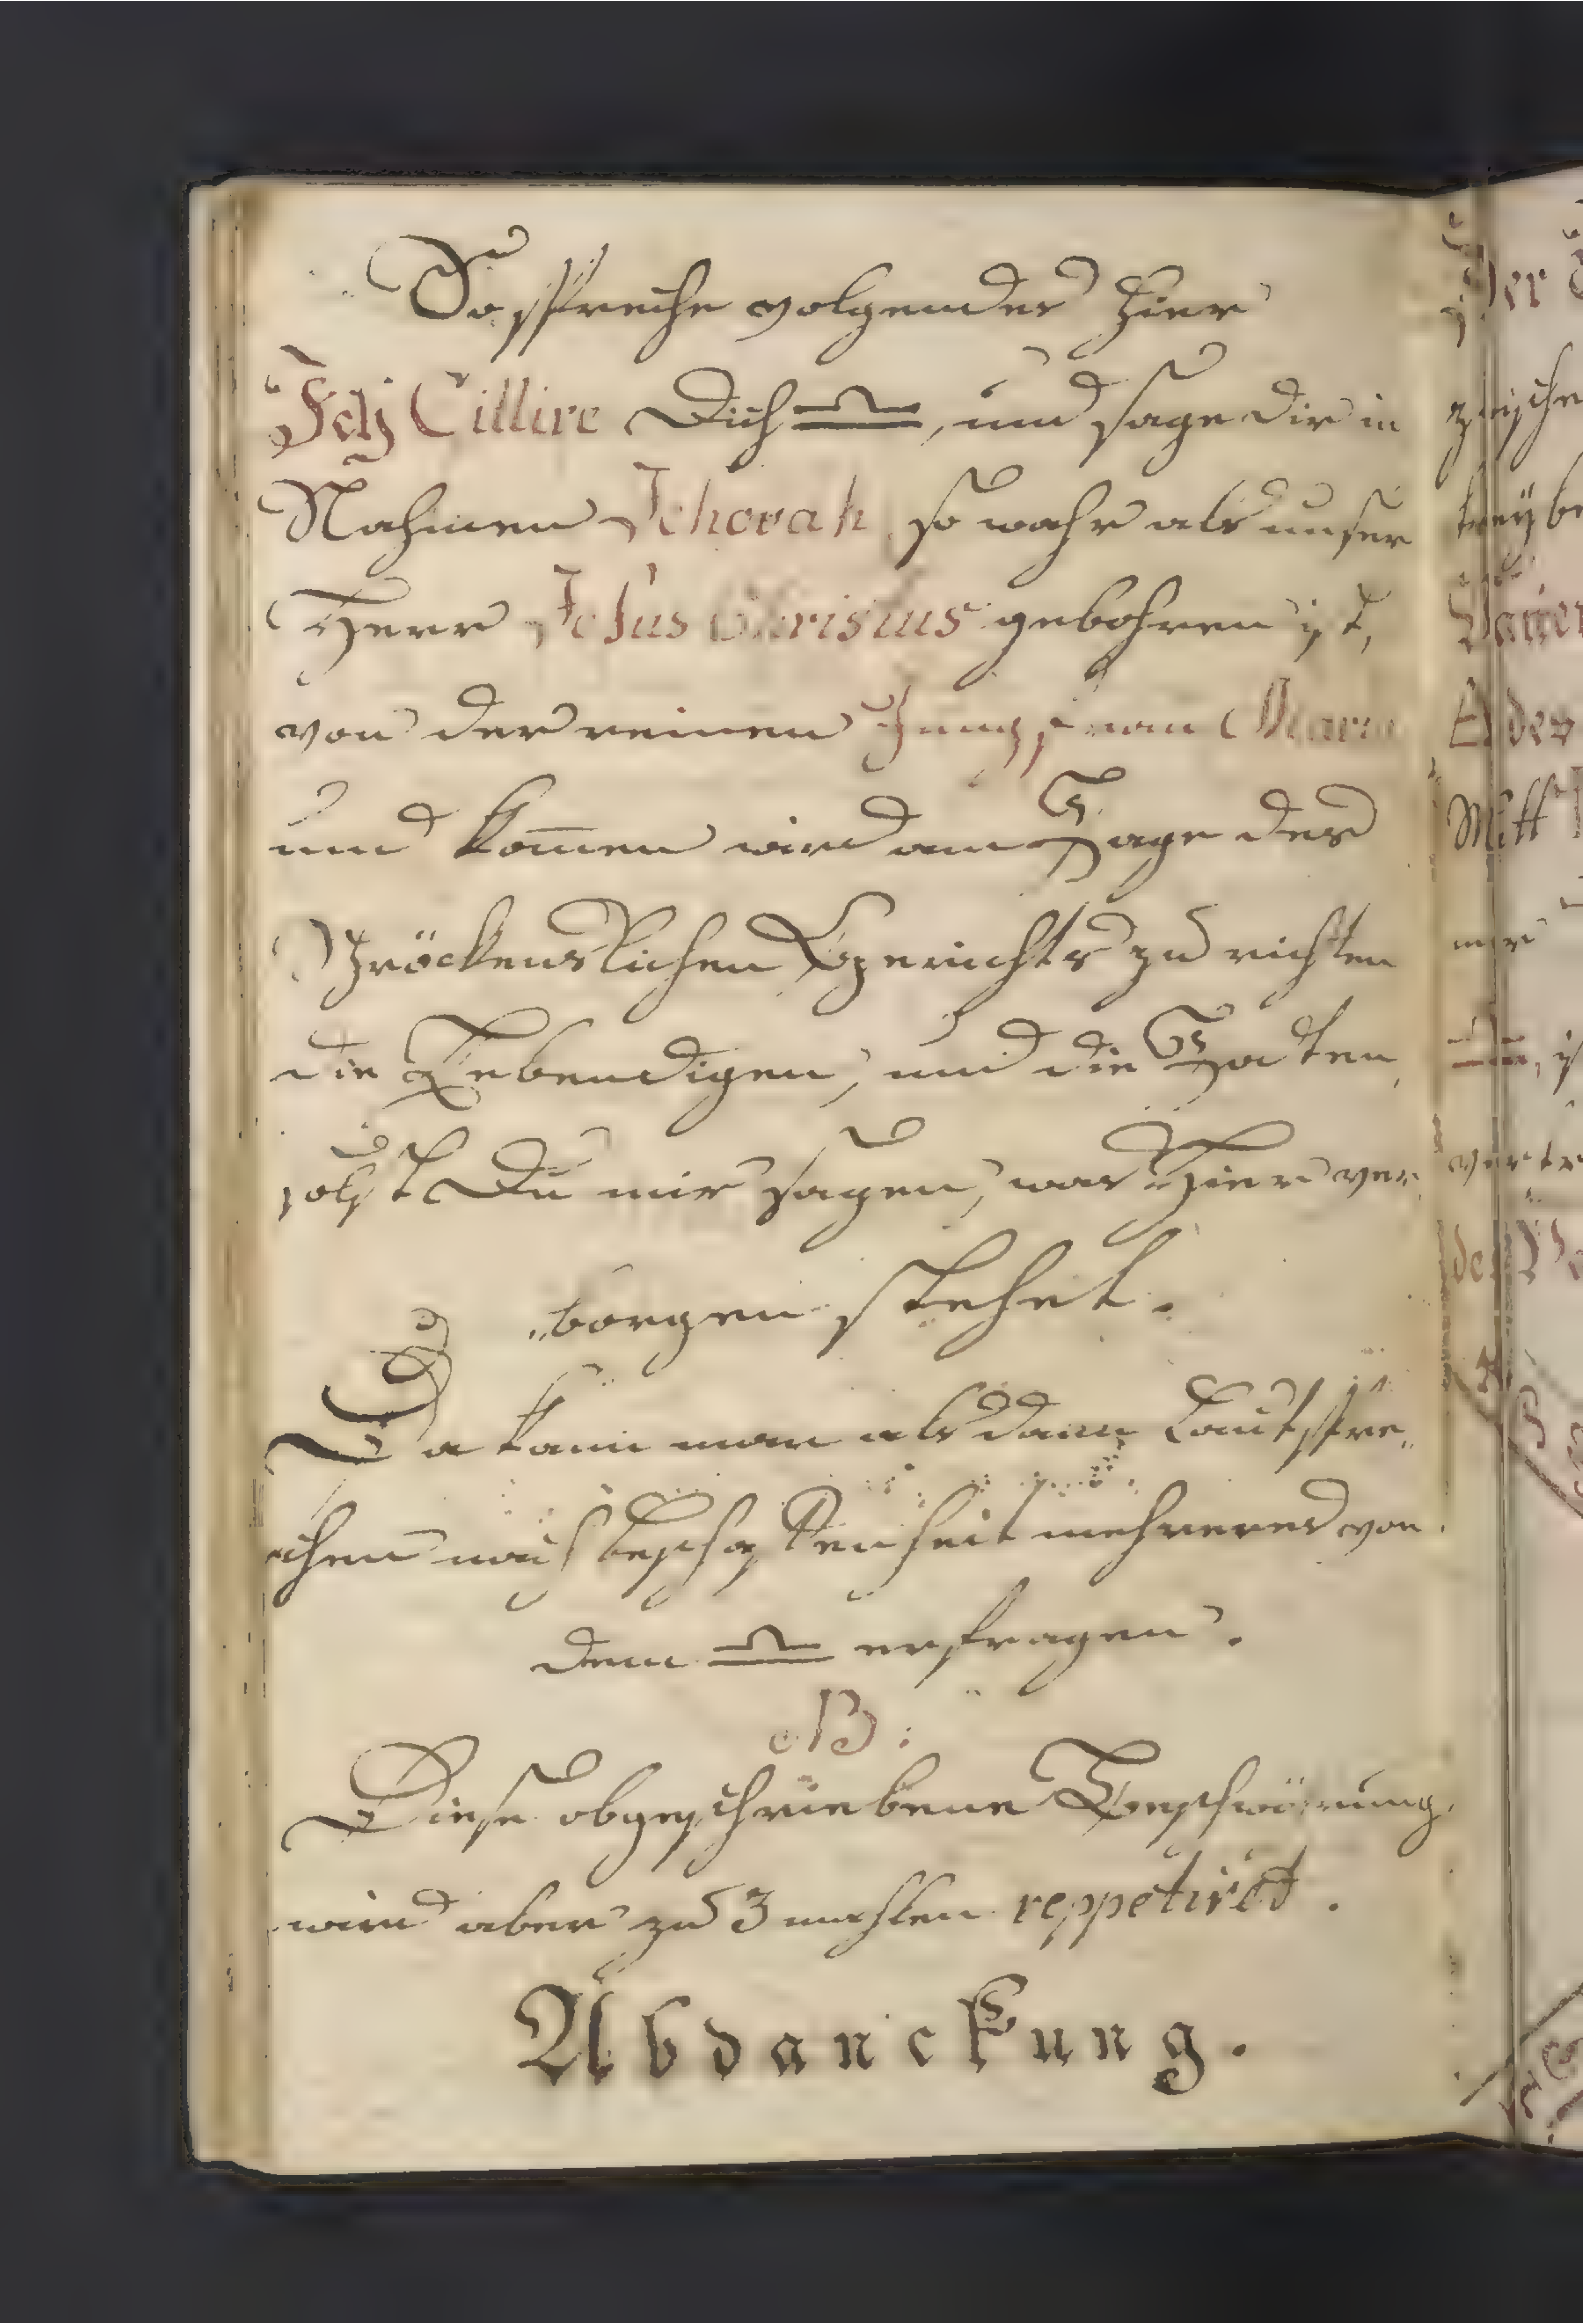 So spreche volgendes hier
Ich Cillire Dich ♎, und sage dir in
Nahmen Jehovah so wahr als unser
Herr Jesus Christus gebohren ist,
von der reinen Jungfrau Maria
und kom̅en wird am Tage des
Schröckenslichen Gerichts zu richten
die Lebendigen, und die Toten,
solst Du mir sagen, was hier ver
„borgen stehet.
Da kann man als dann Laut spre„
chen nach beschaffenheit mehreres von
dem ♎ erfragen.
NB:
Diese obgeschriebene Beschwörung
wird aber zu 3 mahlen reppetiret.
Abdanckung.